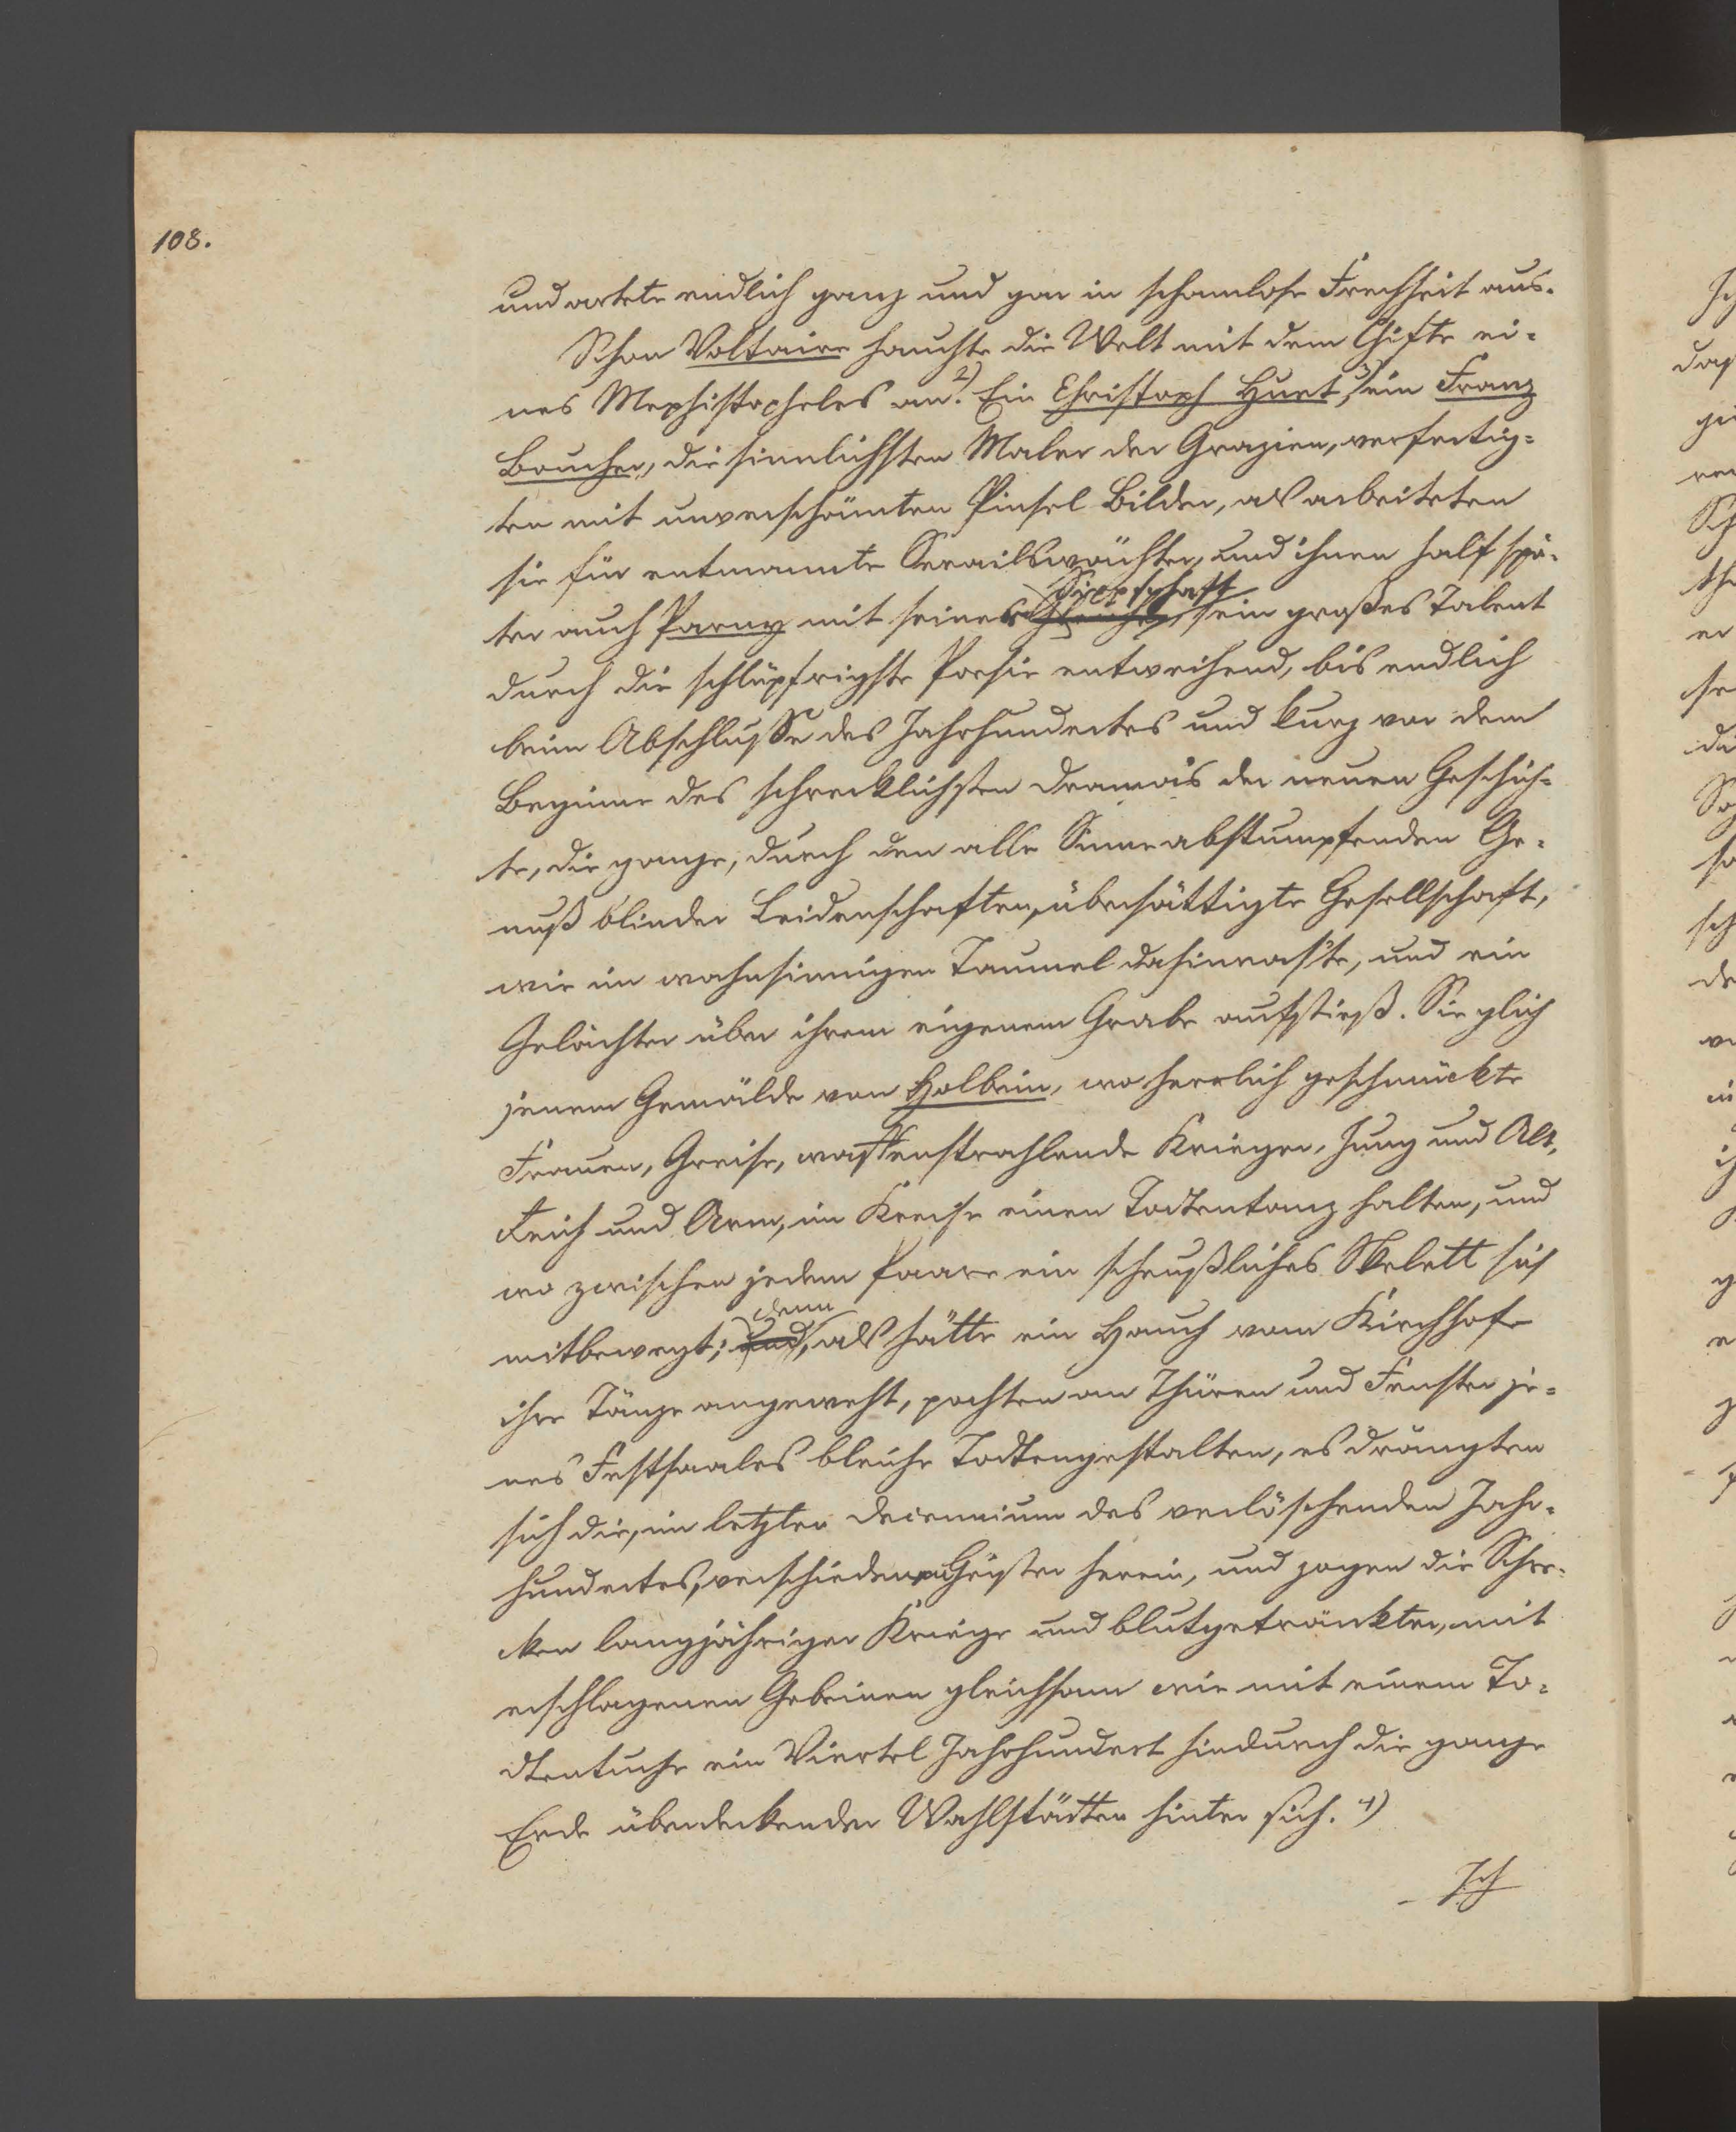 108.
und artete endlich ganz und gar in schamlose Frechheit aus.
Schon Voltaire hauchte die Welt mit dem Gifte ei-
nes Mephistopheles an. 2) Ein Christoph Huet, 3) ein Franz
Boucher, die sinnlichsten Maler der Grazien, verfertig-
ten mit unverschämten Pinsel Bilder, als arbeiteten
sie für entmannte Serailswächter, und ihnen half spä-
Sippschaft
ter auch Parny mit seiner sein großes Talent
durch die schlüpfrigste Poesie entweihend, bis endlich
beim Abschlusse des Jahrhundertes und kurz vor dem
Beginne des schrecklichsten Drama's der neuen Geschich-
te, die ganze, durch den alle Sinne abstumpfenden Ge-
nuß blinder Leidenschaften, übersättigte Gesellschaft,
wie im wahnsinnigen Taumel dahinras'te, und ein
Gelächter über ihrem eigenem Grabe aufstieß. Sie glich
jenem Gemälde von Holbein, wo herrlich geschmückte
Frauen, Greise, waffenstrahlende Krieger, Jung und Alt,
Reich und Arm, im Kreise einen Todtentanz halten, und
wo zwischen jedem Paare ein scheußliches Skelett sich
denn
mitbewegt; und, als hätte ein Hauch vom Kirchhofe
ihre Tänze angeweht, pochten an Thüren und Fenster je-
nes Festsaales bleiche Todtengestalten, es drängten
sich die, im letzten Decennium des verlöschenden Jahr-
hundertes, verschiedenen Geister herein, und zogen die Schre-
cken langjähriger Kriege und blutgetränkter, mit
erschlagenen Gebeinen gleichsam wie mit einem To-
dtentuche ein Viertel Jahrhundert hindurch die ganze
Erde überdeckender Wahlstätten hinter sich. 4)
Ich